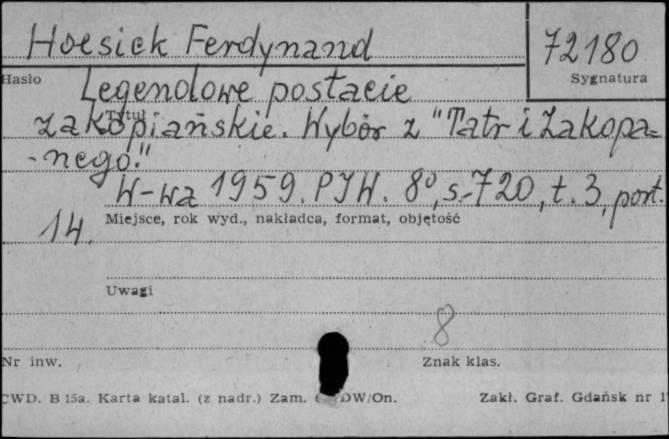 Hoesick Ferdynand
72180
Hasło
Sygnatura
Legendowe postacie
Tytuł
zakopiańskie. Wybór z "Tatr i Zakopa=
-nego."
W-wa 1959. PIW. 8°, s. 720, t. 3, port.
14.
Miejsce, rok wyd., nakładca, format, objętość
Uwagi
8
Nr inw.
Znak klas.
CWD. B 15a. Karta katal. (z nadr.) Zam. DW/On.
Zakł. Graf. Gdańsk nr 1